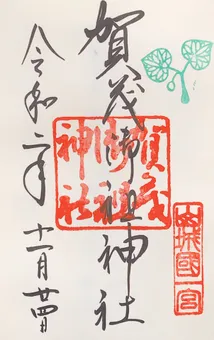 賀茂御祖神社
令和二年十一月廿四日
賀茂御祖神社
山城國一宮